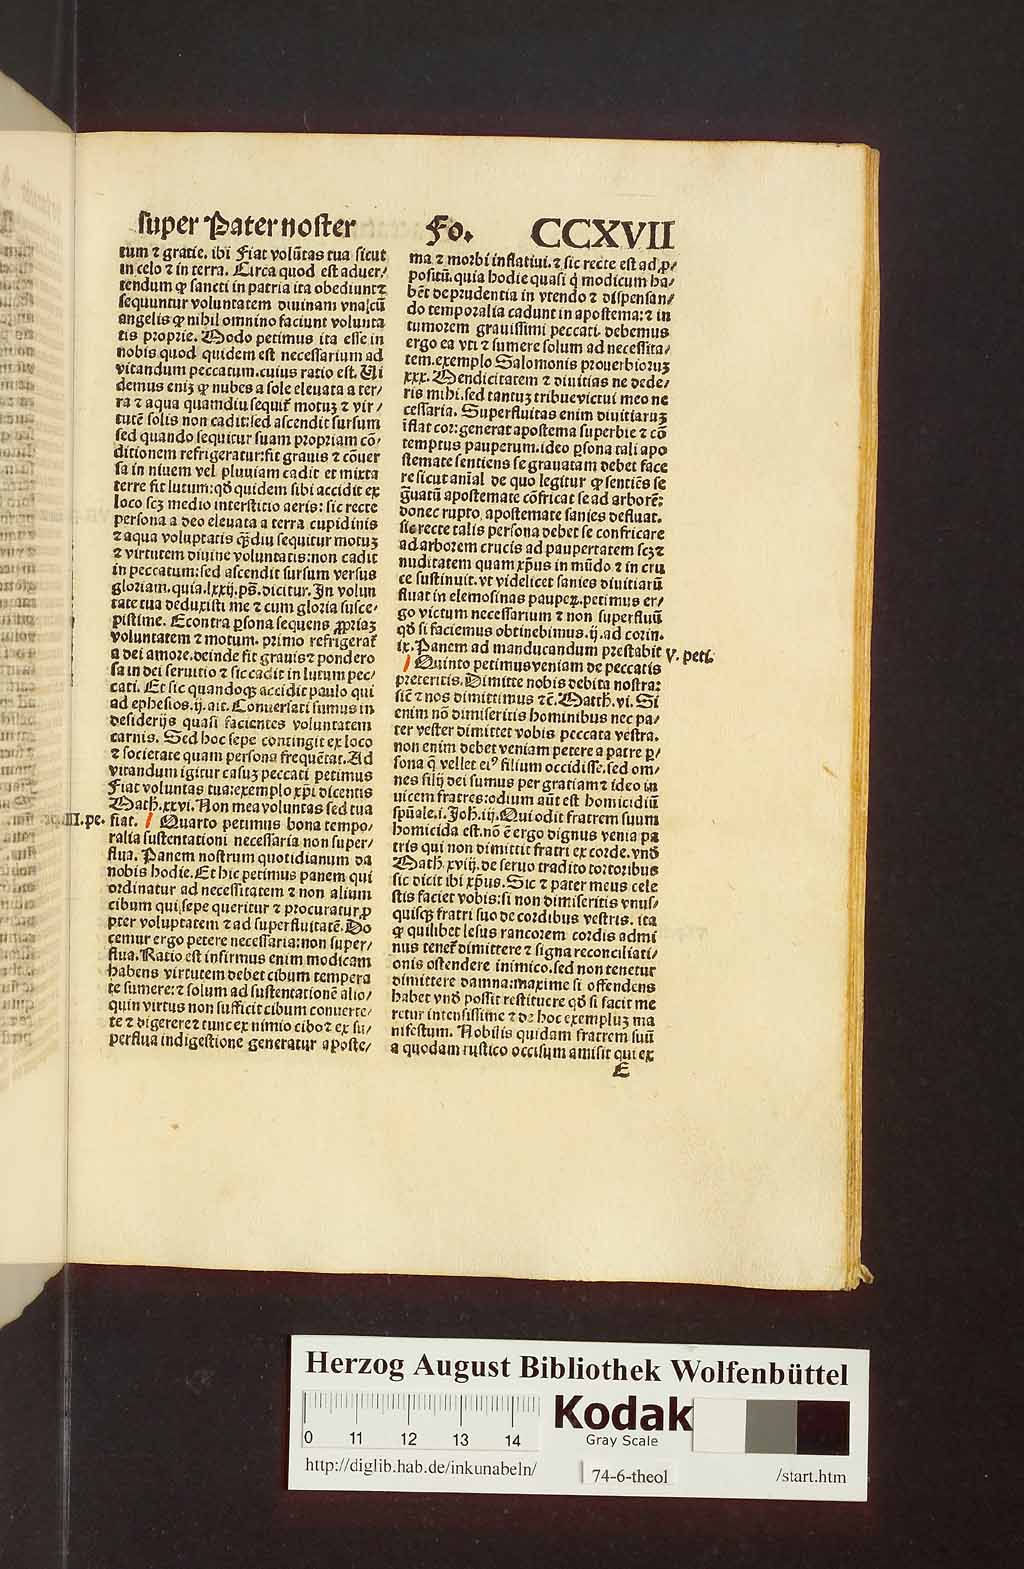 super Pater noster Fo. CCXVII
tum ⁊ gratie. ibi Fiat volūtas tua sicut
in celo ⁊ in terra. Circa quod est aduer/
tendum ꝙ sancti in patria ita obediunt ⁊
sequuntur voluntatem diuinam vna cū
angelis ꝙ nihil omnino faciunt volunta
tis proprie. Modo petimus ita esse in
nobis quod quidem est necessarium ad
vitandum peccatum. cuius ratio est. Vi
demus eniꝫ ꝙ nubes a sole eleuata a ter/
ra ⁊ aqua quamdiu sequit᷑ motuꝫ ⁊ vir/
tutē solis non cadit: sed ascendit sursum
sed quando sequitur suam propriam cō/
ditionem refrigeratur: fit grauis ⁊ cōuer
sa in niuem vel pluuiam cadit et mixta
terre fit lutum: qd̄ quidem sibi accidit ex
loco scꝫ medio interstitio aeris: sic recte
persona a deo eleuata a terra cupidinis
⁊ aqua voluptatis q̄ꝫdiu sequitur motuꝫ
⁊ virtutem diuine voluntatis: non cadit
in peccatum: sed ascendit sursum versus
gloriam. quia. lxxij. ps̄. dicitur. In volun
tate tua deduxisti me ⁊ cum gloria susce/
pistime. Econtra ꝑsona sequens ꝓpriaꝫ
voluntatem ⁊ motum. primo refrigerat᷑
a dei amore. deinde fit grauis ⁊ pondero
sa in dei seruitio ⁊ sic cadit in lutum pec/
cati. Et sic quandoqꝫ accidit paulo qui
ad ephesios. ij. ait. Conuersati sumus in
desiderijs quasi facientes voluntatem
carnis. Sed hoc sepe contingit ex loco
⁊ societate quam persona frequētat. Ad
vitandum igitur casuꝫ peccati petimus
Fiat voluntas tua: exemplo xp̄i dicentis
Math. xxvi. Non mea voluntas sed tua
III. pe. fiat. Quarto petimus bona tempo/
ralia sustentationi necessaria non super/
flua. Panem nostrum quotidianum da
nobis hodie. Et hic petimus panem qui
ordinatur ad necessitatem ⁊ non alium
cibum qui sepe queritur ⁊ procuratur ꝓ
pter voluptatem ⁊ ad superfluitatē. Do
cemur ergo petere necessaria: non super/
flua. Ratio est infirmus enim modicam
habens virtutem debet cibum tempera
te sumere: ⁊ solum ad sustentationē alio/
quin virtus non sufficit cibum conuerte/
te ⁊ digerere ⁊ tunc ex nimio cibo ⁊ ex su/
perflua indigestione generatur aposte/
ma ⁊ morbi inflatiui. ⁊ sic recte est ad ꝓ/
positū. quia hodie quasi q̇ modicum ha/
bēt de prudentia in vtendo ⁊ dispensan/
do temporalia cadunt in apostema: ⁊ in
tumorem grauissimi peccati. debemus
ergo ea vti ⁊ sumere solum ad necessita/
tem. exemplo Salomonis prouerbioruꝫ
xxx. Mendicitatem ⁊ diuitias ne dede/
ris mihi. sed tantuꝫ tribue victui meo ne
cessaria. Superfluitas enim diuitiaruꝫ
īflat cor: generat apostema superbie ⁊ cō
temptus pauperum. ideo ꝑsona tali apo
stemate sentiens se grauatam debet face
re sicut aīal de quo legitur ꝙ sentiēs se
g̃uatū apostemate cōfricat se ad arborē:
donec rupto apostemate sanies defluat.
sic recte talis persona debet se confricare
ad arborem crucis ad paupertatem scꝫ ⁊
nuditatem quam xp̄us in mūdo ⁊ in cru
ce sustinuit. vt videlicet sanies diuitiarū
fluat in elemosinas pauperꝝ. petimus er/
go victum necessarium ⁊ non superfluū
qd̄ si faciemus obtinebimus. ij. ad corin.
ix. Panem ad manducandum prestabit V. peti.
Quinto petimus veniam de peccatis
preteritis. Dimitte nobis debita nostra:
sic̄ ⁊ nos dimittimus ⁊c̄. Matth. vi. Si
enim nō dimiseritis hominibus nec pa/
ter vester dimittet vobis peccata vestra.
non enim debet veniam petere a patre ꝑ/
sona q̄ vellet eiꝰ filium occidisse. sed om/
nes filij dei sumus per gratiam ⁊ ideo in
uicem fratres: odium aūt est homicidiū
sp̄uale. i. Joh̄. iij. Qui odit fratrem suum
homicida est. nō ē ergo dignus venia pa
tris qui non dimittit fratri ex corde. vnd̄
Math. xviij. de seruo tradito tortoribus
sic dicit ibi xp̄us. Sic ⁊ pater meus cele
stis faciet vobis: si non dimiseritis vnus/
quisqꝫ fratri suo de cordibus vestris. ita
ꝙ quilibet lesus rancorem cordis admi
nus tenet᷑ dimittere ⁊ signa reconciliati/
onis ostendere inimico. sed non tenetur
dimittere damna: maxime si offendens
habet vnd̄ possit restituere qd̄ si facit me
retur intensissime ⁊ de hoc exempluꝫ ma
nifestum. Nobilis quidam fratrem suū
a quodam rustico occisum amisit qui ex
E
Herzog August Bibliothek Wolfenbüttel
0 11 12 13 14
Kodak
Gray Scale
http://diglib.hab.de/inkunabeln/ 74-6-theol /start.htm